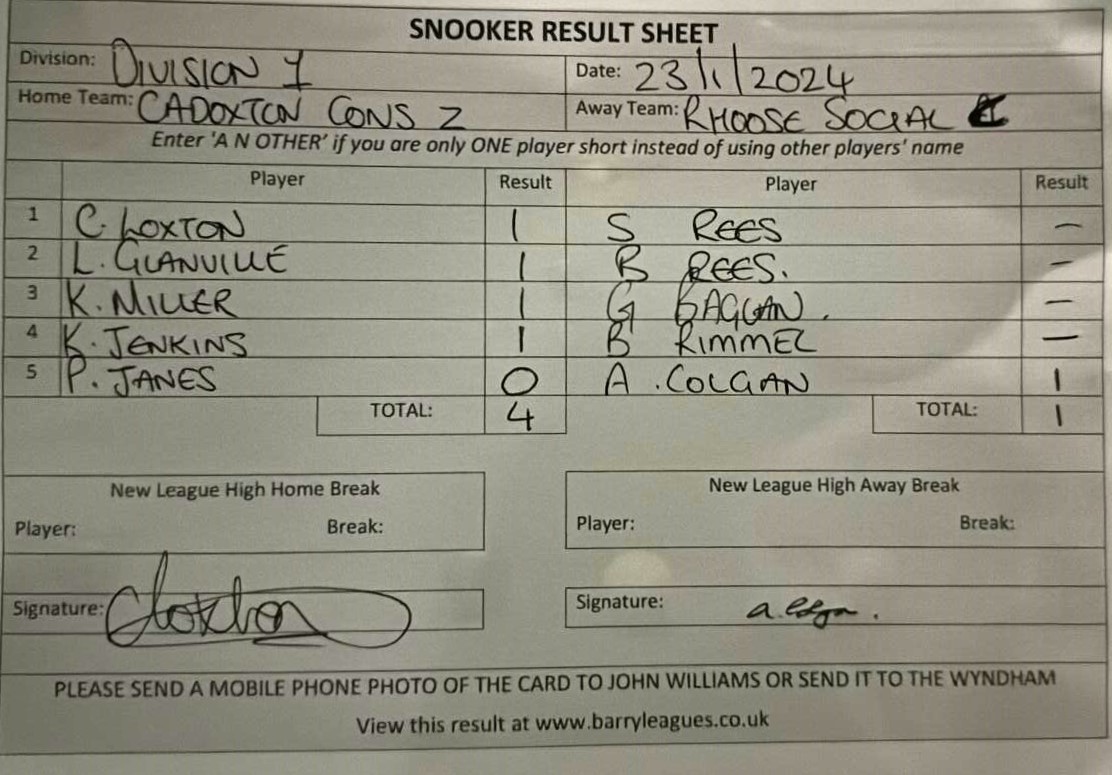 SNOOKER RESULT SHEET
Division: DIVISION 1 Date: 23/1/2024
Home Team: CADOXTON CONS 2 Away Team: RHOOSE SOCIAL
Enter 'A N OTHER' if you are only ONE player short instead of using other players' name
Player Result Player Result
1 C. LOXTON 1 S REES —
2 L. GLANVILLE 1 B REES. —
3 K. MILLER 1 G BAGGAN . —
4 K. JENKINS 1 B RIMMEL —
5 P. JANES 0 A . COLGAN 1
TOTAL: 4 TOTAL: 1
New League High Home Break New League High Away Break
Player: Break: Player: Break:
Signature: CLoxton Signature: a. Colgan .
PLEASE SEND A MOBILE PHONE PHOTO OF THE CARD TO JOHN WILLIAMS OR SEND IT TO THE WYNDHAM
View this result at www.barryleagues.co.uk